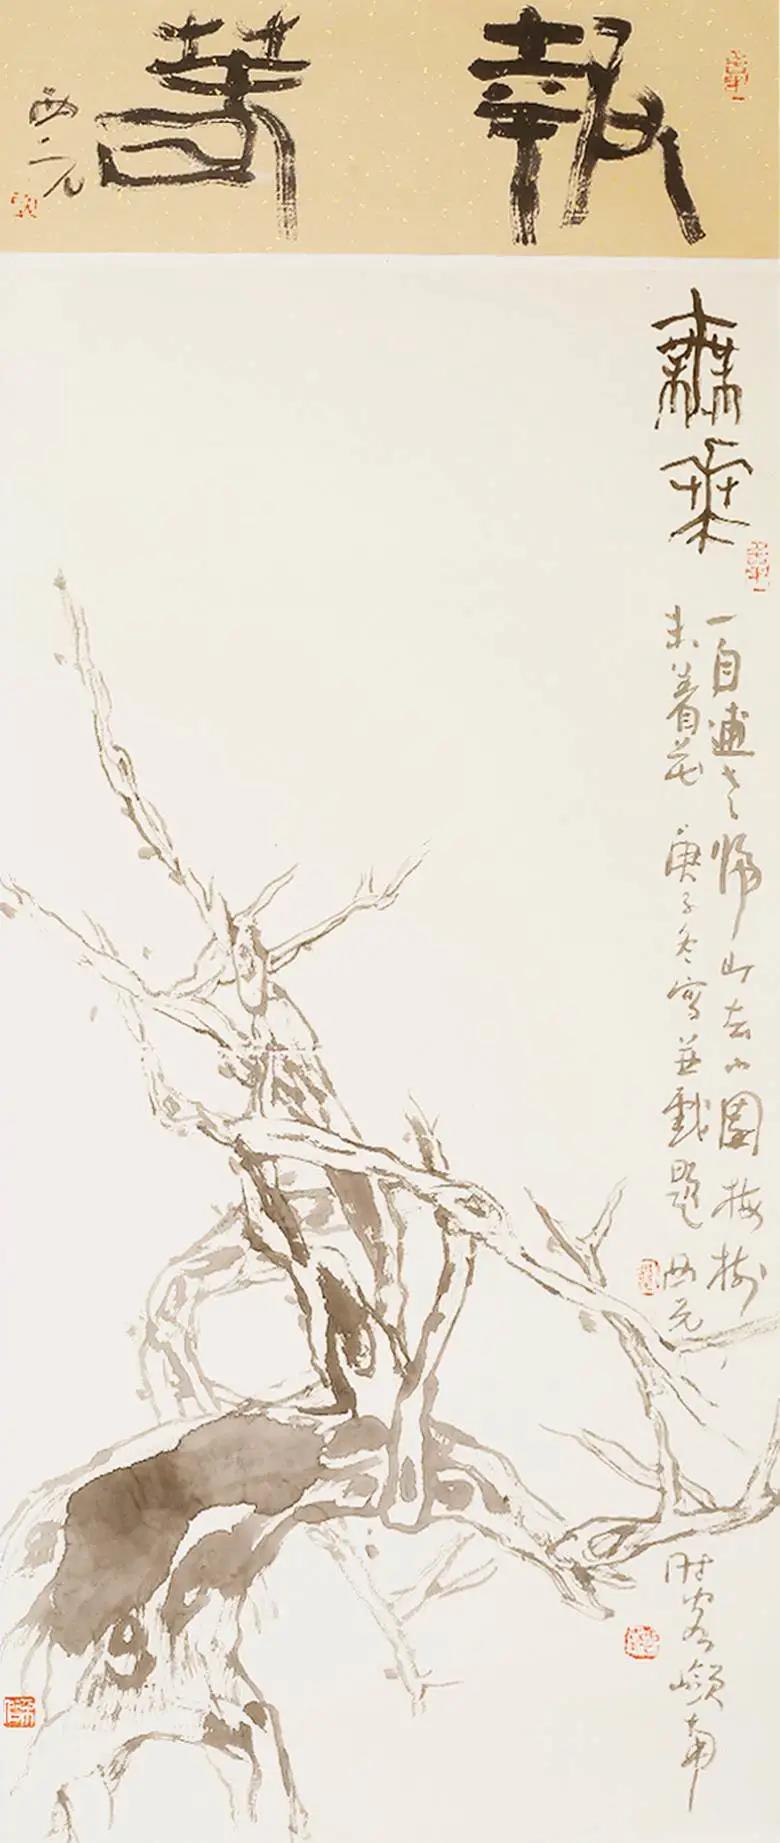 執著
西元
無
一自逋老歸山去小園梅樹
未着花 庚子冬寫並戲題 西元
時客嶺南